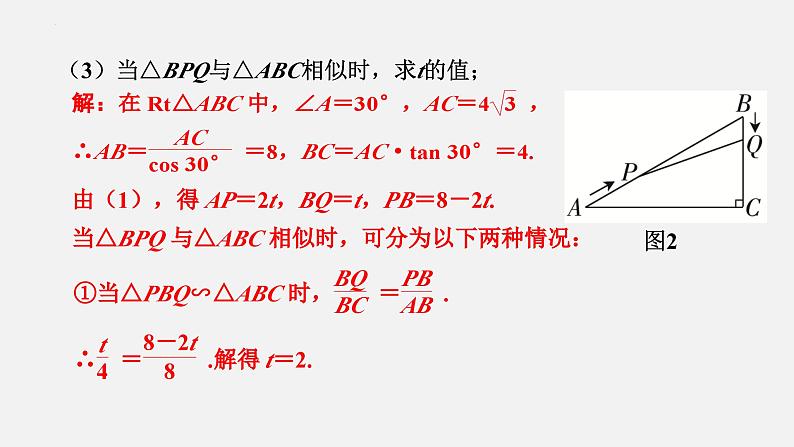 （3）当△BPQ与△ABC相似时，求t的值；
解：在 Rt△ABC 中，∠A＝30°，AC＝4√3 ，
∴AB＝AC/cos 30° ＝8，BC＝AC·tan 30°＝4.
由（1），得 AP＝2t，BQ＝t，PB＝8－2t.
当△BPQ 与△ABC 相似时，可分为以下两种情况：
①当△PBQ∽△ABC 时，BQ/BC ＝PB/AB .
∴t/4 ＝8－2t/8 .解得 t＝2.
B
Q
P
A
C
图2